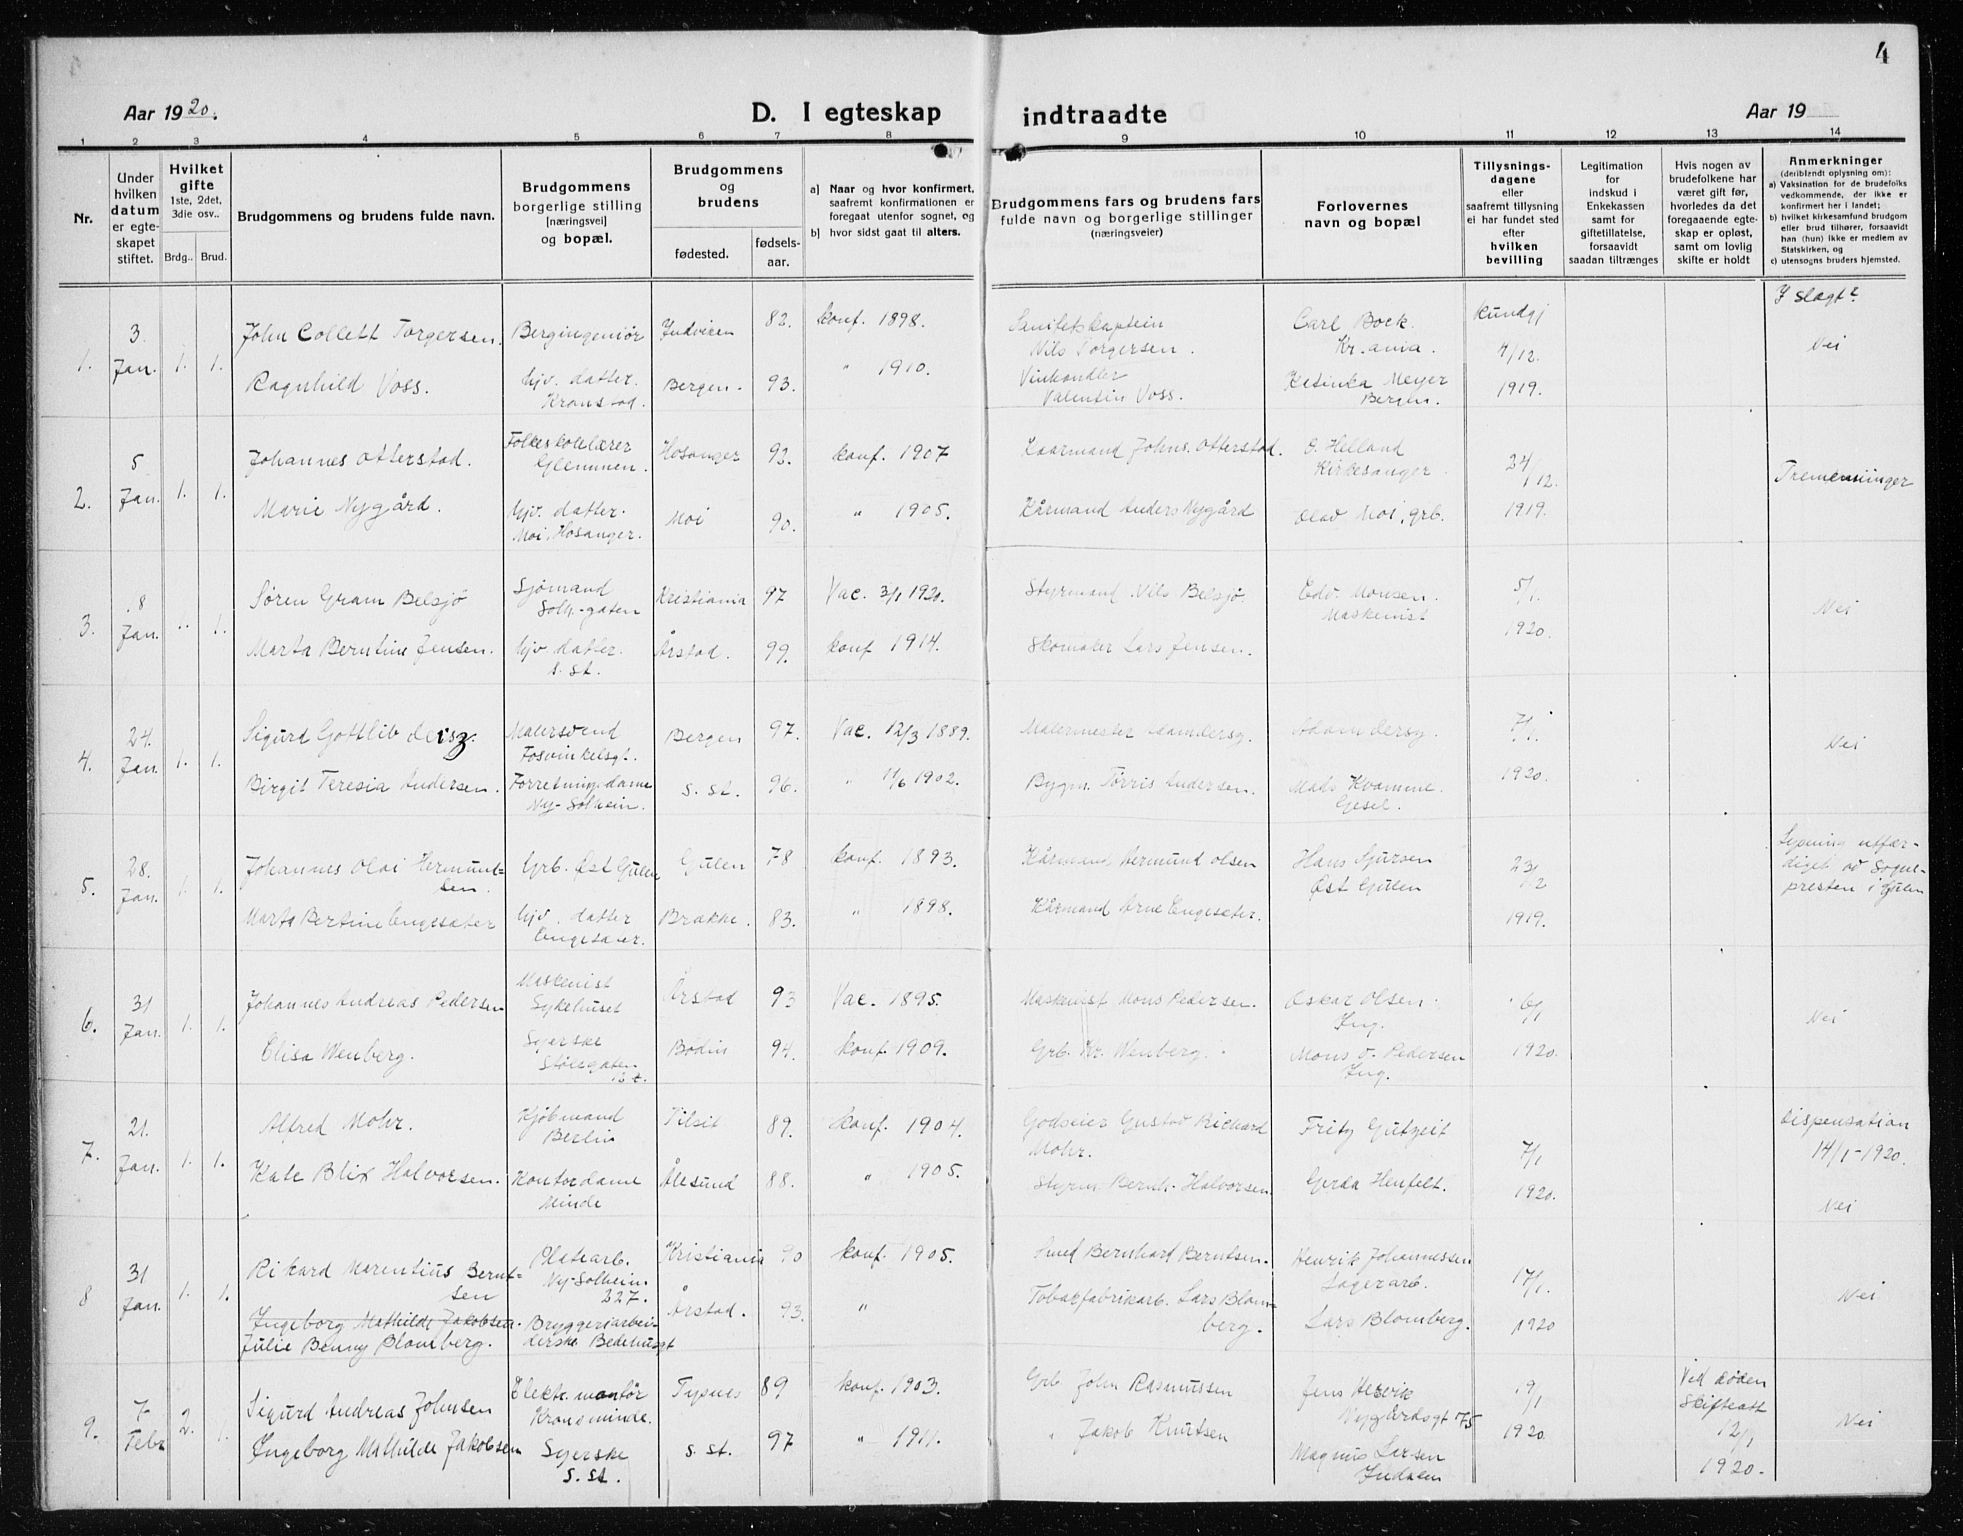 4
Aar 1920.
D. I egteskap
indtraadte
Aar 19
1 2 3 4 5 6 7 8 9 10 11 12 13 14
Nr.
Under
hvilken
datum
er egte-
skapet
stiftet.
Hvilket
gifte
1ste, 2det,
3die osv..
Brdg.. Brud.
Brudgommens og brudens fulde navn.
Brudgommens
borgerlige stilling
[næringsvei]
og bopæl.
Brudgommens
og
brudens
fødested.
fødsels-
aar.
a) Naar og hvor konfirmert,
saafremt konfirmationen er
foregaat utenfor sognet, og
b) hvor sidst gaat til alters.
Brudgommens fars og brudens fars
fulde navn og borgerlige stillinger
(næringsveier)
Forlovernes
navn og bopæl
Tillysnings-
dagene
eller
saafremt tillysning
ei har fundet sted
efter
hvilken
bevilling
Legitimation
for
indskud i
Enkekassen
samt for
giftetillatelse,
forsaavidt
saadan tiltrænges
Hvis nogen av
brudefolkene har
været gift før,
hvorledes da det
foregaaende egte-
skap er opløst,
samt om lovlig
skifte er holdt
Anmerkninger
(deriblendt oplysning om):
a) Vaksination for de brudefolks
vedkommende, der ikke er
konfirmert her i landet;
b) hvilket kirkesamfund brudgom
eller brud tilhører, forsaavidt
han (hun) ikke er medlem av
Statskirken, og
c) utensogns bruders hjemsted.
1. 3. Jan. 1. 1.
John Collett Torgersen. Bergingeniør Indviken 82. konf. 1898.
Sanitetskaptein
Nils Torgersen.
Carl Bock.
Kr.ania.
kundgj
4/12.
1919.
I slægt?
Nei
Ragnhild Voss. hjv. datter.
Kronstad.
Bergen. 93. " 1910.
Vinhandler
Valentin Voss.
Ketinka Meyer
Bergen.
2. 5 Jan. 1. 1.
Johannes Otterstad. Folkeskolelærer
Glemmen.
Hosanger 92. konf. 1907
Gaarmand Johns. Otterstad. G. Helland
Kirkesanger.
24/12.
1919.
Tremenninger
Marie Nygård. hjv. datter.
Moi, Hosanger.
Moi 90. " 1905.
Kårmand Anders Nygård Olav Moi, grb.
3. 8 Jan. " 1.
Søren Gram Belsjø Sjømand
Solh.-gaten
Kristiania 97 Vac. 3/1 1920.
Styrmand Nils Belsjø. Edv. Monsen.
Maskinist
5/1.
1920.
Nei
Marta Berntine Jensen. hjv. datter.
s. st.
Årstad. 99. konf 1914.
Skomaker Lars Jensen.
4. 24. Jan. 1. 1.
Sigurd Gottlib Malersvend
Fosvinkelsgt.
Bergen 97. Vac. 12/3 1889.
Malermester
7/1.
1920.
Nei
Birgit Teresia Andersen. Forretningsdame
Ny-Solheim.
s. st. 96. " 11/6 1902.
Bygm. Tørris Andersen. Mads Kvamme.
Gesel.
5. 28. Jan. 1. 1.
Johannes Olai Hermund-
sen.
Grb. Øst Gulen Gulen 78 konf. 1893.
Kårmand Hermund Olsen Hans Sjursen
Øst Gulen
23/12
1919.
Lysning utfær-
diget av Sogne-
presten i Gulen
Marta Bertine Engesæter hjv. datter
Engesæter.
Brække. 83. " 1898.
Kårmand Arne Engesæter.
6. 31 Jan. 1. 1.
Johannes Andreas Pedersen Maskinist
Sykehuset
Årstad 93 Vac. 1895.
Maskinist Mons Pedersen. Oskar Olsen.
Ing.
6/1
1920.
Nei
Elisa Wenberg. Syerske
Stølegaten
Bodin 94. konf. 1909.
Grb. Kr. Wenberg. Mons O. Pedersen
Ing.
7. 21. Jan. 1. 1.
Alfred Mohr. Kjøbmand
Berlin
Tilsit 89. konf. 1904.
Godseier Gustav Rickard
Mohr.
Fritz Gutzeit
7/1
1920.
Dispensation
14/1-1920.
Nei
Kate Blix Halvorsen. Kontordame
Minde
Ålesund 88. " 1905.
Styrm. Bernh. Halvorsen. Gerda Henfelt.
8 31 Jan. 1. 1.
Rikard Marentius Bernt-
sen
Platearb.
Ny-Solheim.
227.
Kristiania 90 konf. 1905.
Smed Bernhard Berntsen. Henrik Johannessen
Lagerarb.
17/1.
1920
Nei
Ingeborg Mathilde Jakobsen.
Julie Benny Blomberg.
Bryggeriarbei-
derske Bedehusgt
Årstad. 93. "
Tobakfabrikarb. Lars Blom-
berg.
Lars Blomberg.
9. 7. Febr 2. 1.
Sigurd Andreas Johnsen Elektr. montør
Kronsminde.
Tysnes 89 konf. 1903.
Grb. John Rasmussen Jens Hesvik
Nygårdsgt 75
19/1
1920.
Ved døden
Skifteatt
12/1
1920.
Nei
Ingeborg Mathilde Jakobsen Syerske
s. st.
s. st. 97 " 1911.
" Jakob Knutsen Magnus Larsen
Indalen